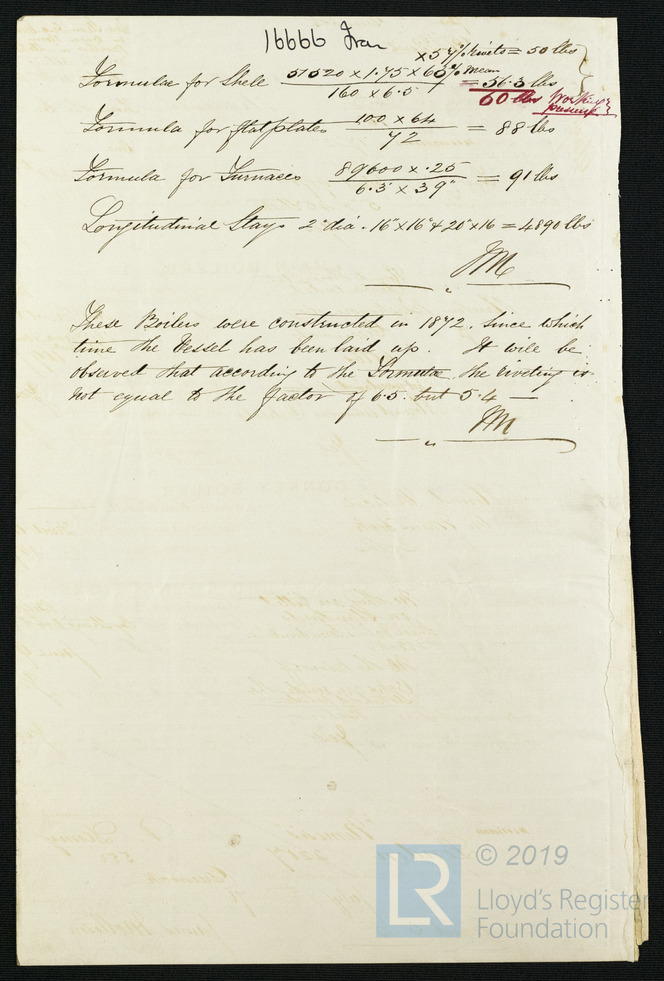 16666 Iron
× 57% rivets = 50 lbs
Formulae for Shell 51520 × 1.75 × 65% mean / 160 × 6.5 = 56.3 lbs
60 lbs Working pressure
Formula for flat plates 100 × 64 / 72 = 88 lbs
Formula for Furnaces 89600 × .25 / 6.3 × 39" = 91 lbs
Longitudinal Stays 2" dia. 16" × 16" & 20" × 16 = 4890 lbs
JM
These Boilers were constructed in 1872. Since which
time the Vessel has been laid up. It will be
observed that according to the Formulae the riveting is
not equal to the factor of 6.5. but 5.4 —
JM
LR
© 2019
Lloyd's Register
Foundation